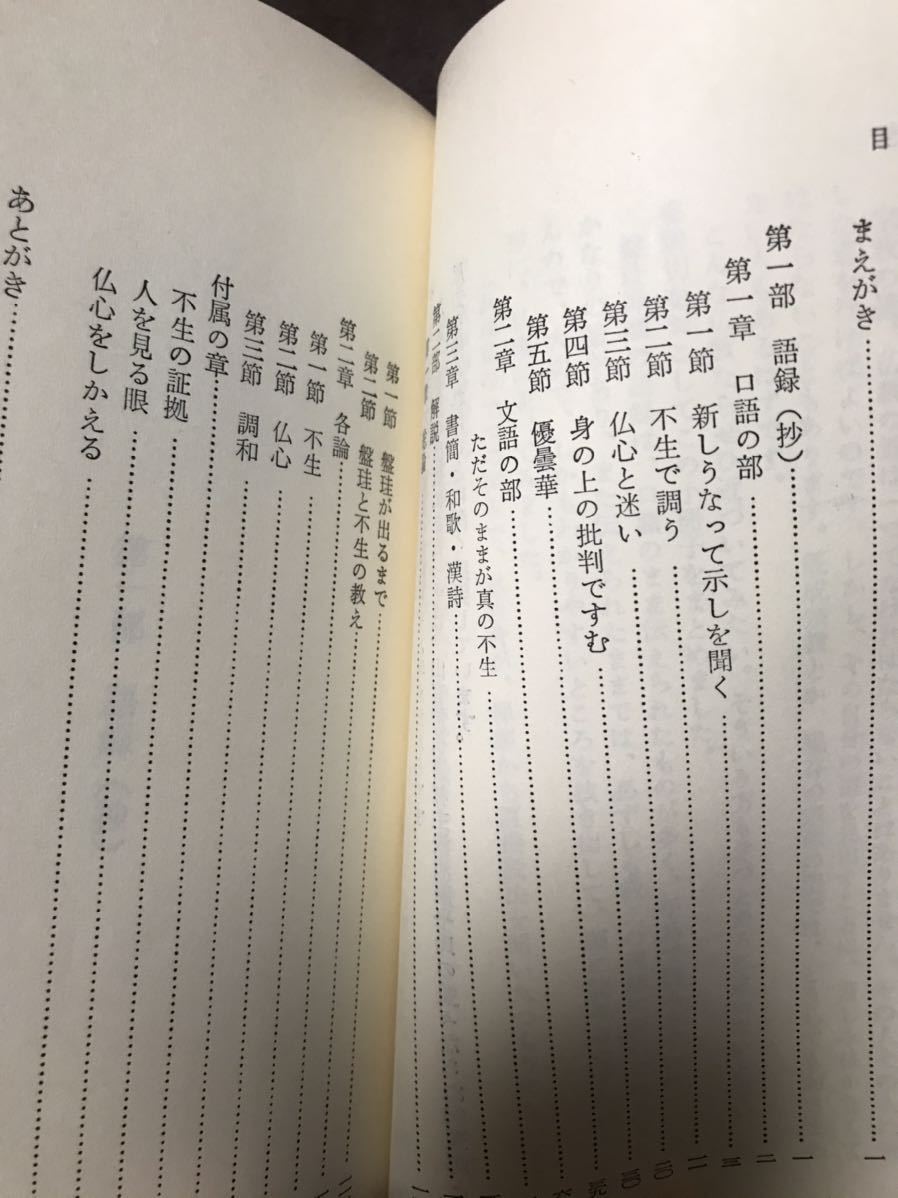 目
まえがき
第一部 語録(抄)
第一章 口語の部
第一節 新しうなって示しを聞く
第二節 不生で調う
第三節 仏心と迷い
第四節 身の上の批判ですむ
第五節 優曇華
第二章 文語の部
ただそのままが真の不生
第三章 書簡・和歌・漢詩
第二部 解説
第一節 盤珪が出るまで
第二節 盤珪と不生の教え
第二章 各論
第一節 不生
第二節 仏心
第三節 調和
付属の章
不生の証拠
人を見る眼
仏心をしかえる
あとがき